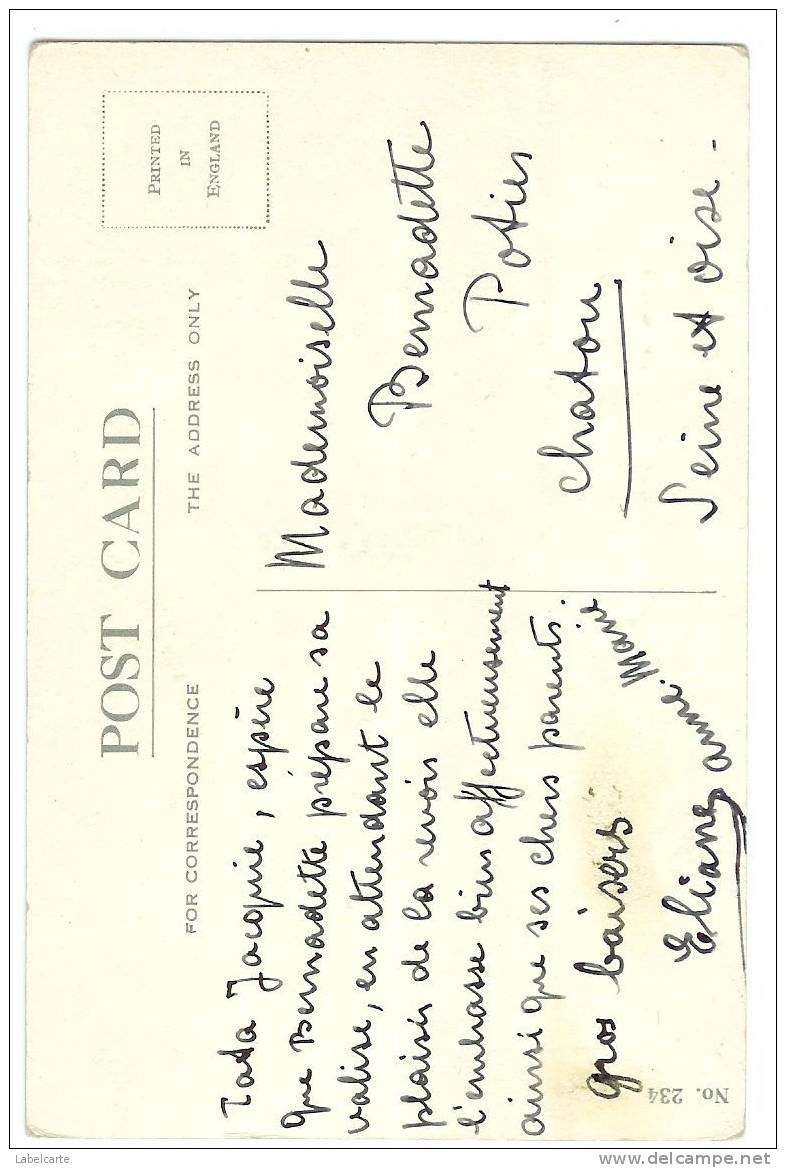 POST CARD
FOR CORRESPONDENCE
THE ADDRESS ONLY
PRINTED
IN
ENGLAND
Tata Jacquie, espère
que Bernadette prépare sa
valise, en attendant le
plaisir de la revoir elle
l'embrasse bien affectueusement
ainsi que ses chers parents.
gros baisers
Eliane
anne Marie
Mademoiselle
Bernadette
Potier
Chatou
Seine et oise -
No. 234
Labelcarte
www.delcampe.net